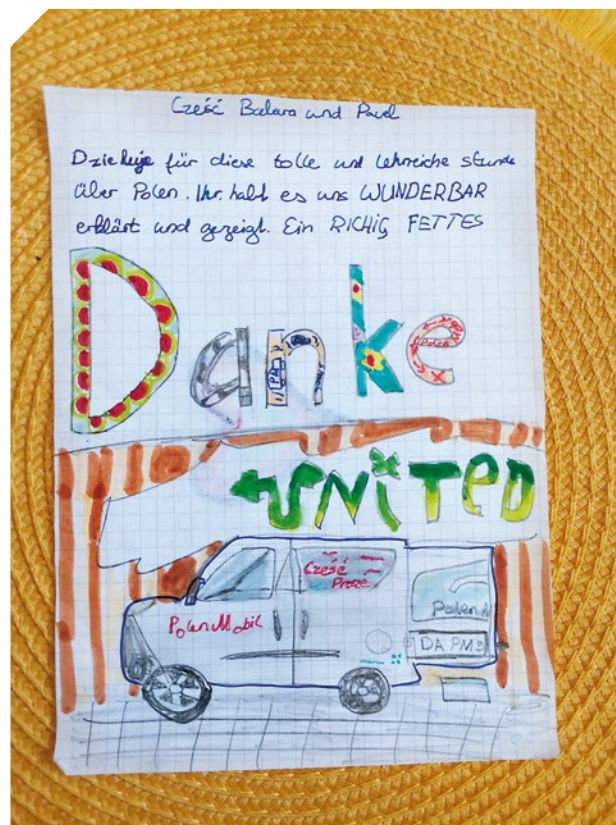 Cześć Balara und Pavel
Dziekuje für diese tolle und lehrreiche stunde
über Polen. Ihr habt es uns WUNDERBAR
erklärt und gezeigt. Ein RICHIG FETTES
Danke
UNITED
Cześć
Proze
PolenMobil
Polen M
DA PM